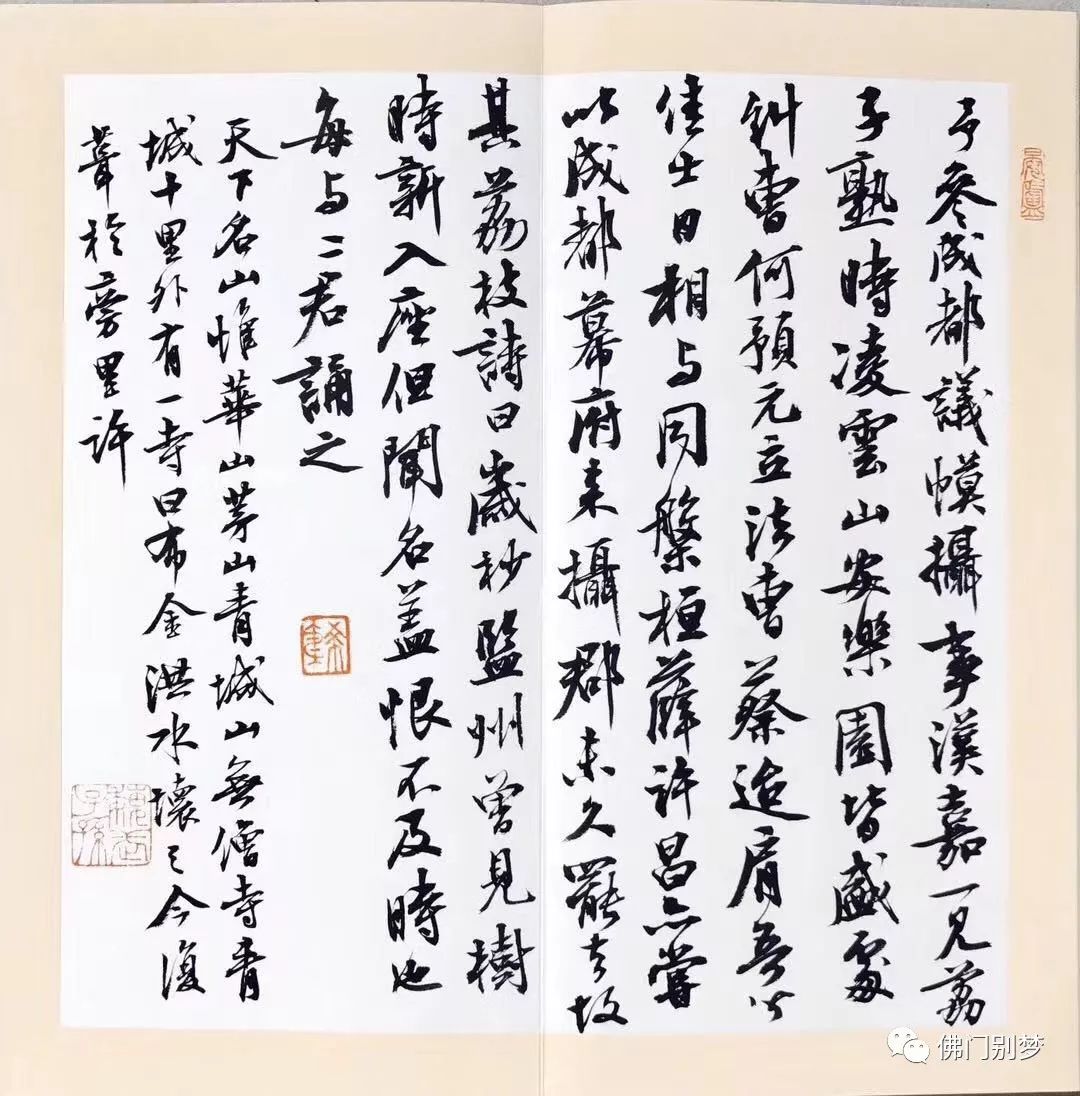 予參成都議幙攝事漢嘉一見荔
子熟時凌雲山安樂園皆盛處
糾曹何預元立法曹蔡迨肩吾皆
佳士日相与同槃桓薛許昌亦嘗
以成都幕府来攝郡未久罷去故
其荔枝詩曰歲杪監州曾見樹
時新入座但聞名盖恨不及時也
每与二君誦之
天下名山惟華山茅山青城山無僧寺青
城十里外有一寺曰布金洪水壞之今復
葺於旁里許
佛门别梦